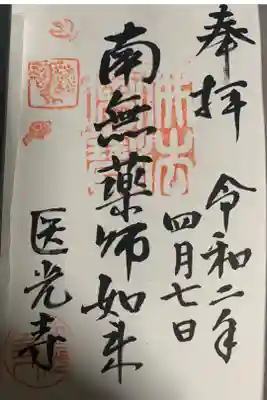 奉拝
令和二年
四月七日
南無薬師如来
医光寺